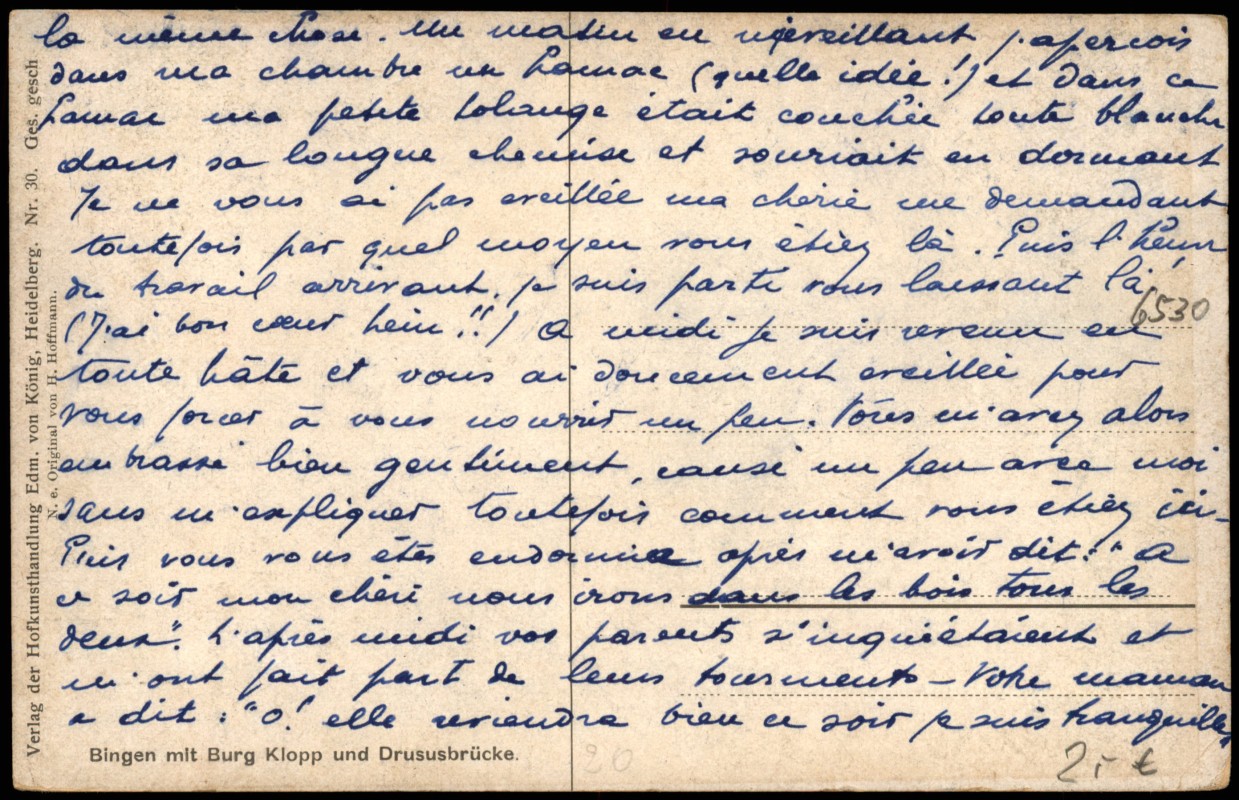 la même chose. Un matin en m'eveillant j'apercois
dans ma chambre un hamac (quelle idée!) et dans ce
hamac ma petite Solange était couchée toute blanche
dans sa longue chemise et souriait en dormant
Je ne vous ai pas eveillée ma chérie me demandant
toutefois par quel moyen vous étiez là. Puis l'heure
du travail arrivant, je suis parti vous laissant là
(J'ai bon cœur hein!!) A midi je suis revenu en
toute hâte et vous ai doucement eveillée pour
vous forcer à vous nourrir un peu. Vous m'avez alors
embrassé bien gentiment, causé un peu avec moi
sans m'expliquer toutefois comment vous étiez ici-
Puis vous vous êtes endormie après m'avoir dit: "A
ce soir mon chéri nous irons dans les bois tous les
deux". L'après midi vos parents s'inquiétaient et
m'ont fait part de leurs tourments - Votre maman
a dit: "O! elle reviendra bien ce soir je suis tranquille"
6530
Bingen mit Burg Klopp und Drususbrücke.
20
2,- €
Verlag der Hofkunsthandlung Edm. von König, Heidelberg. Nr. 30. Ges. gesch
N. e. Original von H. Hoffmann.